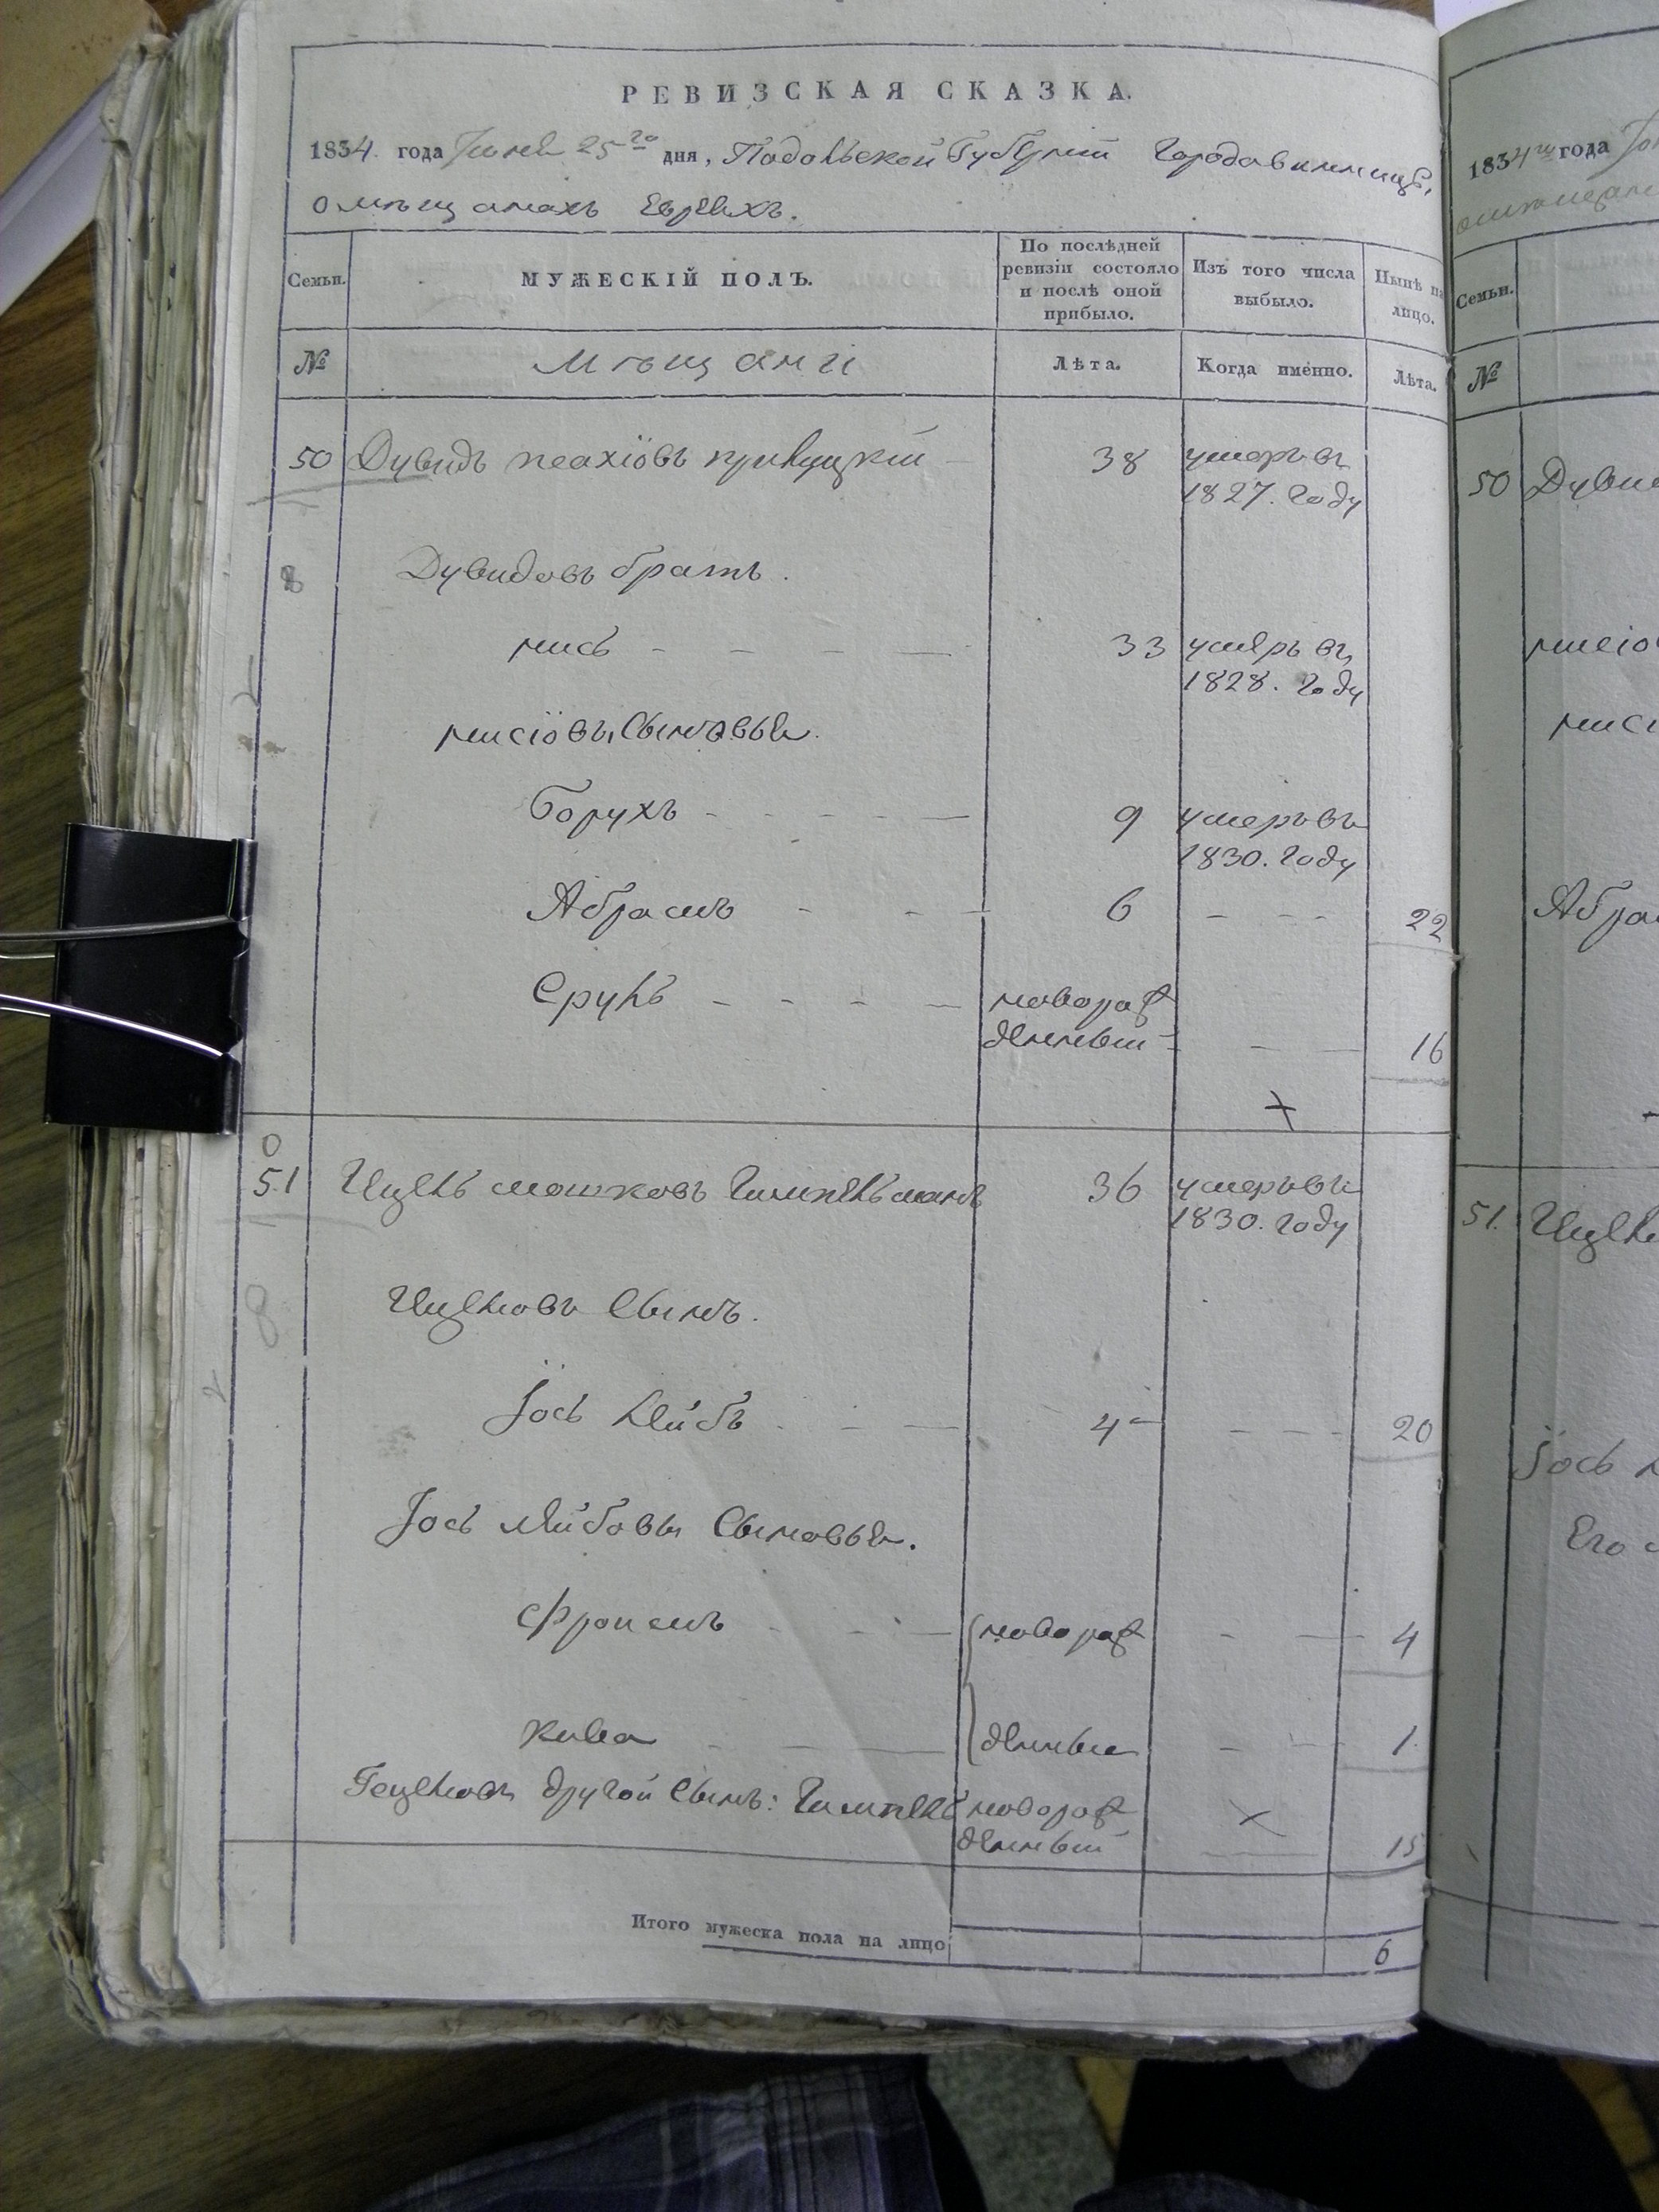 РЕВИЗСКАЯ СКАЗКА.
1834. года Іюня 25го дня, Подольской Губерніи Города винницы,
О мѣщанахъ Евреяхъ.
Семьи. МУЖЕСКІЙ ПОЛЪ. По послѣдней ревизіи состояло и послѣ оной прибыло. Изъ того числа выбыло. Нынѣ на лицо.
№ Мѣщане Лѣта. Когда именно. Лѣта.
50 Дувидъ песахіовъ кривуцкій 38 умеръ въ
1827. Году
8 Дувидовъ братъ.
мись 33 умеръ въ
1828. Году
мисіовы Сыновья.
Борухъ 9 умеръ въ
1830. Году
Абрамъ 6 22
Сруль новорож
денный 16
0
51 Ицель мошковъ Гимпельманъ 36 умеръ въ
1830. Году
8 Ицелювъ Сынъ.
Іось Лейбъ 4 20
Іось Лейбовы Сыновья.
Фроимъ новорож 4
Кива денные 1.
Гецелювъ другой Сынъ: Гимпель новорож
денный 15
Итого мужеска пола на лицо 6
1834го года
Семьи.
№
50
Абра
51.
Іось
Его